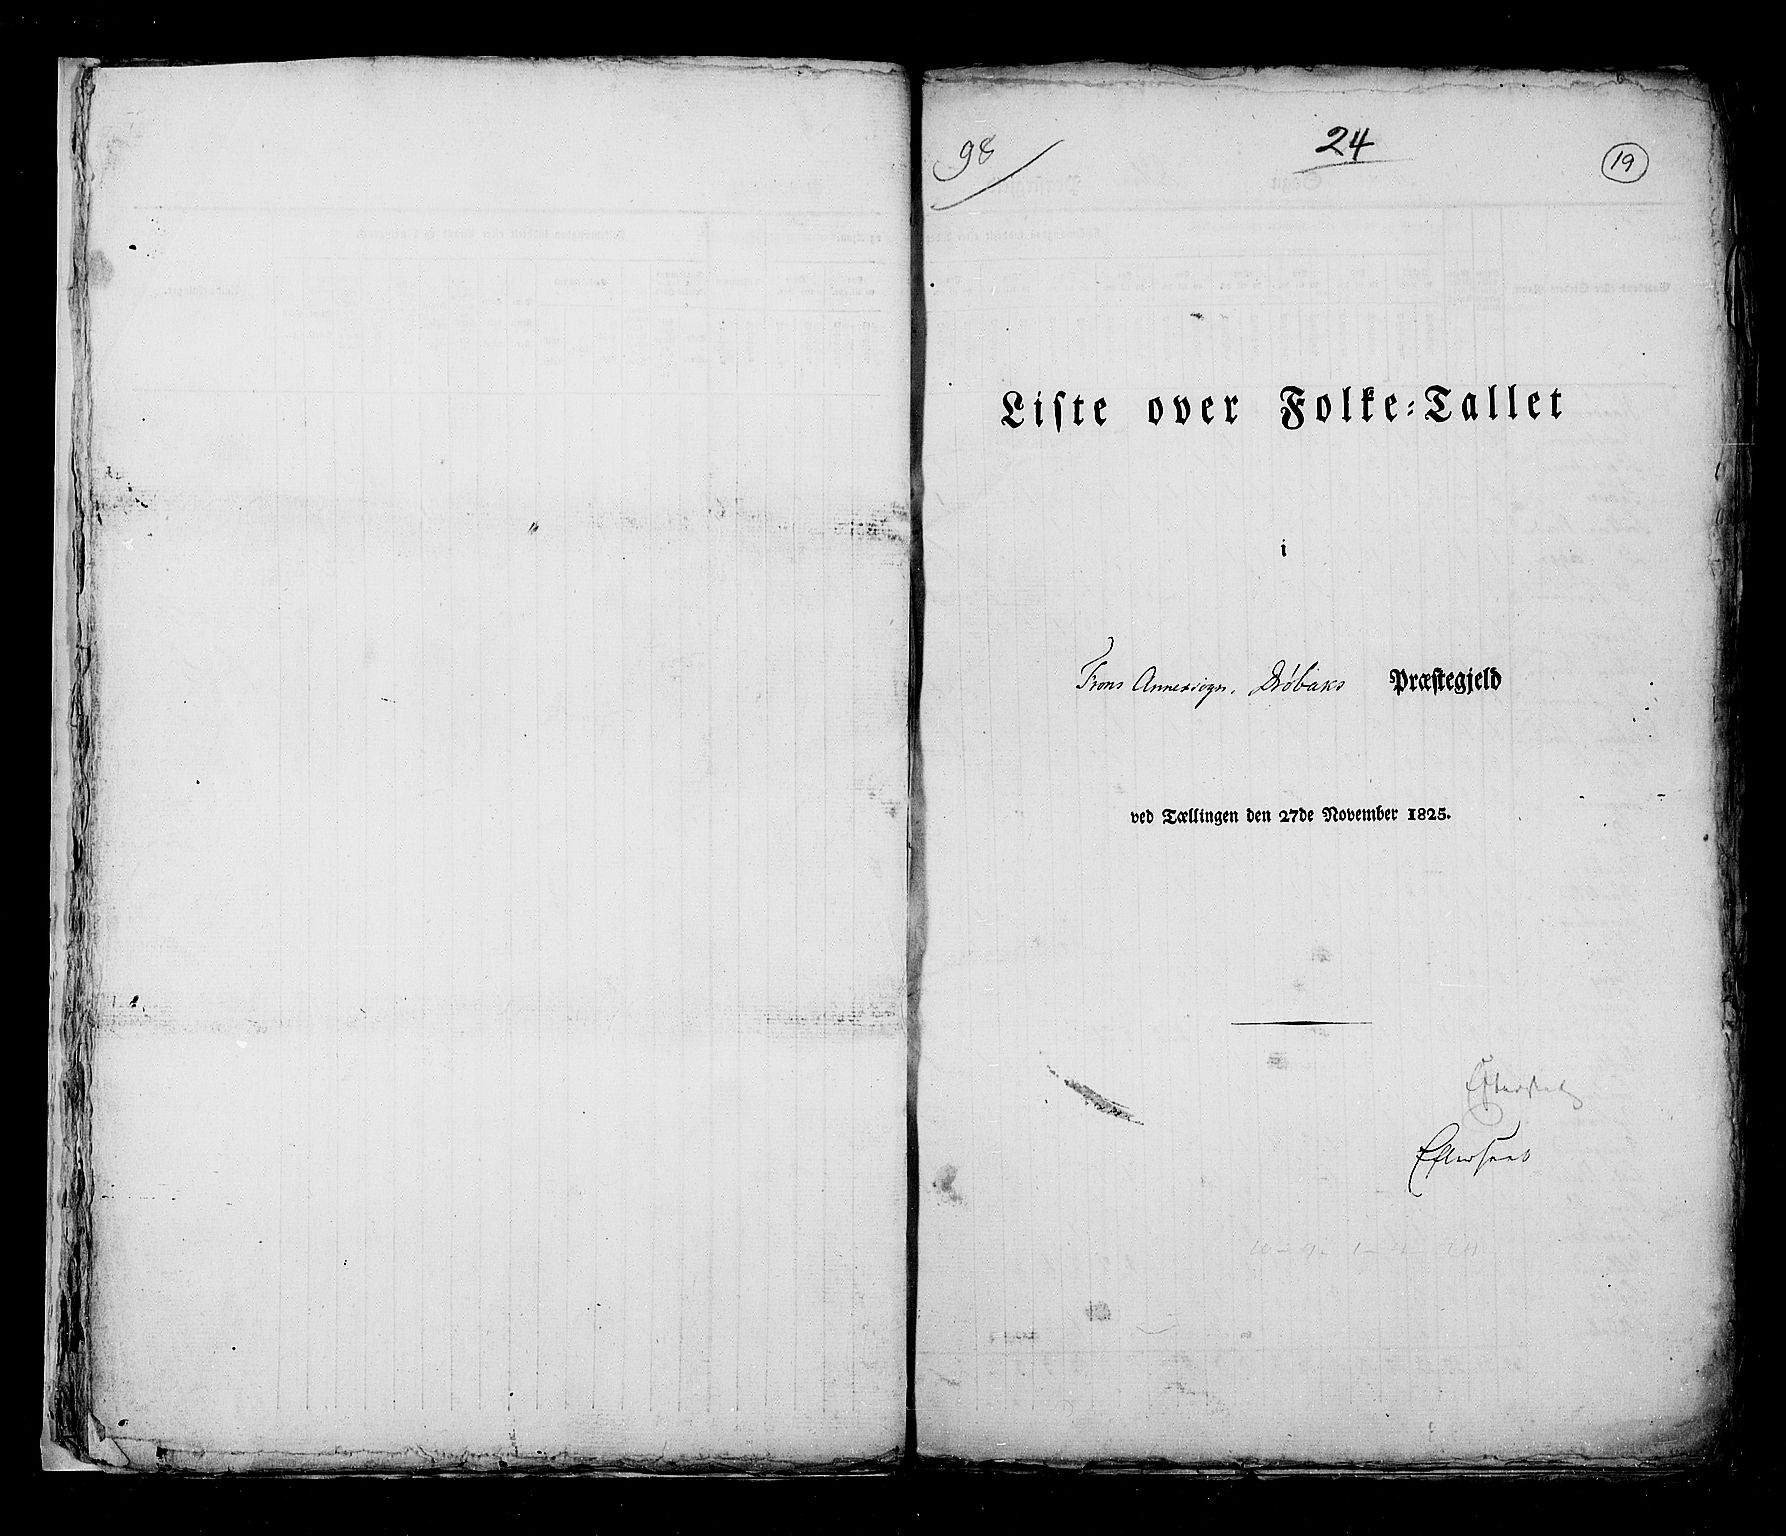 98
24
19
Liste over Folke-Tallet
i
Frons Annexsogn, Drøbaks Præstegjeld
ved Tællingen den 27de November 1825.
Efterseet